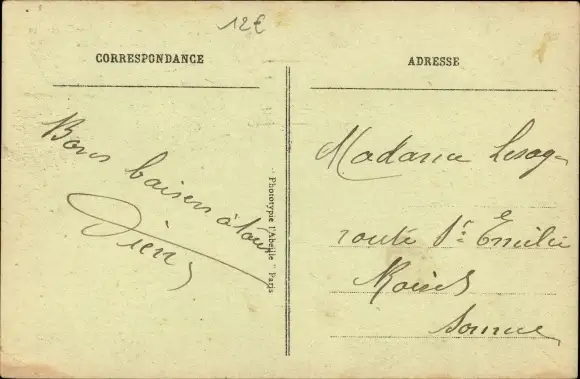 12€
CORRESPONDANCE
ADRESSE
Bons baisers à tous
Madame Lesage
route Ste Emilie
Somme
Phototypie l'Abeille - Paris